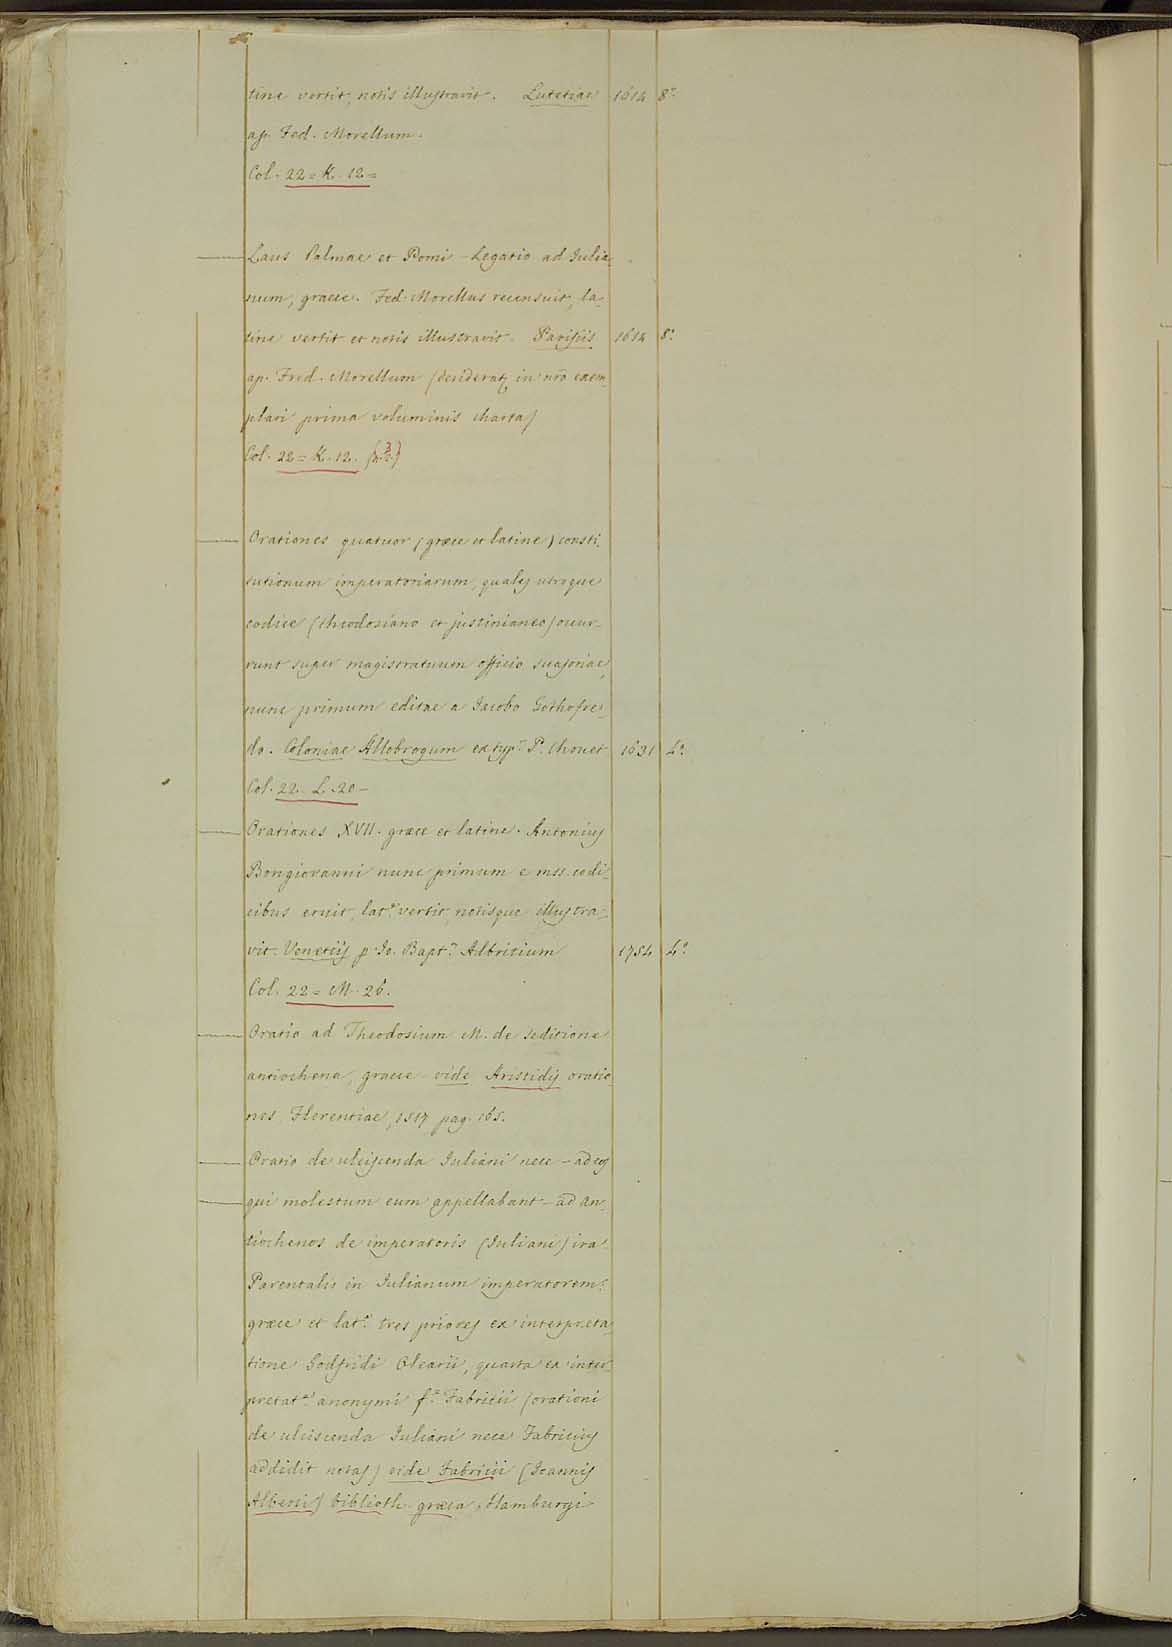 tine vertit, notis illustravit. Lutetiae 1614 8.º
ap. Fed. Morellum.
Col. 22 = K. 12 =
Laus Palmae et Pomi - Legatio ad Julia-
num, graece. Fed. Morellus recensuit, la-
tine vertit et notis illustravit. Parisiis 1614 8.º
ap. Fred. Morellum (desideratq in nrõ exem-
plari prima voluminis charta)
Col. 22 = K. 12.
Orationes quatuor (graece et latine) consti-
tutionum imperatoriarum, quales utroque
codice (theodosiano et justinianeo) occur-
runt super magistratuum officio suasoriae,
nunc primum editae a Jacobo Gothofre-
do. Coloniae Allobrogum ex typ.s P. Chouet 1631 4.º
Col. 22. L. 20 -
Orationes XVII. graece et latine. Antonius
Bongiovanni nunc primum e mss. codi-
cibus eruit, lat.e vertit, notisque illustra-
vit. Venetiis p. Jo. Bapt.m Albritium 1754 4.º
Col. 22 = M. 26.
Oratio ad Theodosium M. de seditione
antiochena, graece - vide Aristidis oratio-
nes, Florentiae, 1517 pag. 165.
Oratio de ulciscenda Juliani nece - ad eos
qui molestum eum appellabant - ad an-
tiochenos de imperatoris (Juliani) ira.
Parentalis in Julianum imperatorem.
graece et lat.e tres priores ex interpreta-
tione Godfridi Olearii, quarta ex inter-
pretat.e anonymi Fabritii (orationi
de ulciscenda Juliani nece Fabricius
addidit notas) vide Fabricii (Joannis
Alberti) biblioth. graeca, Hamburgi